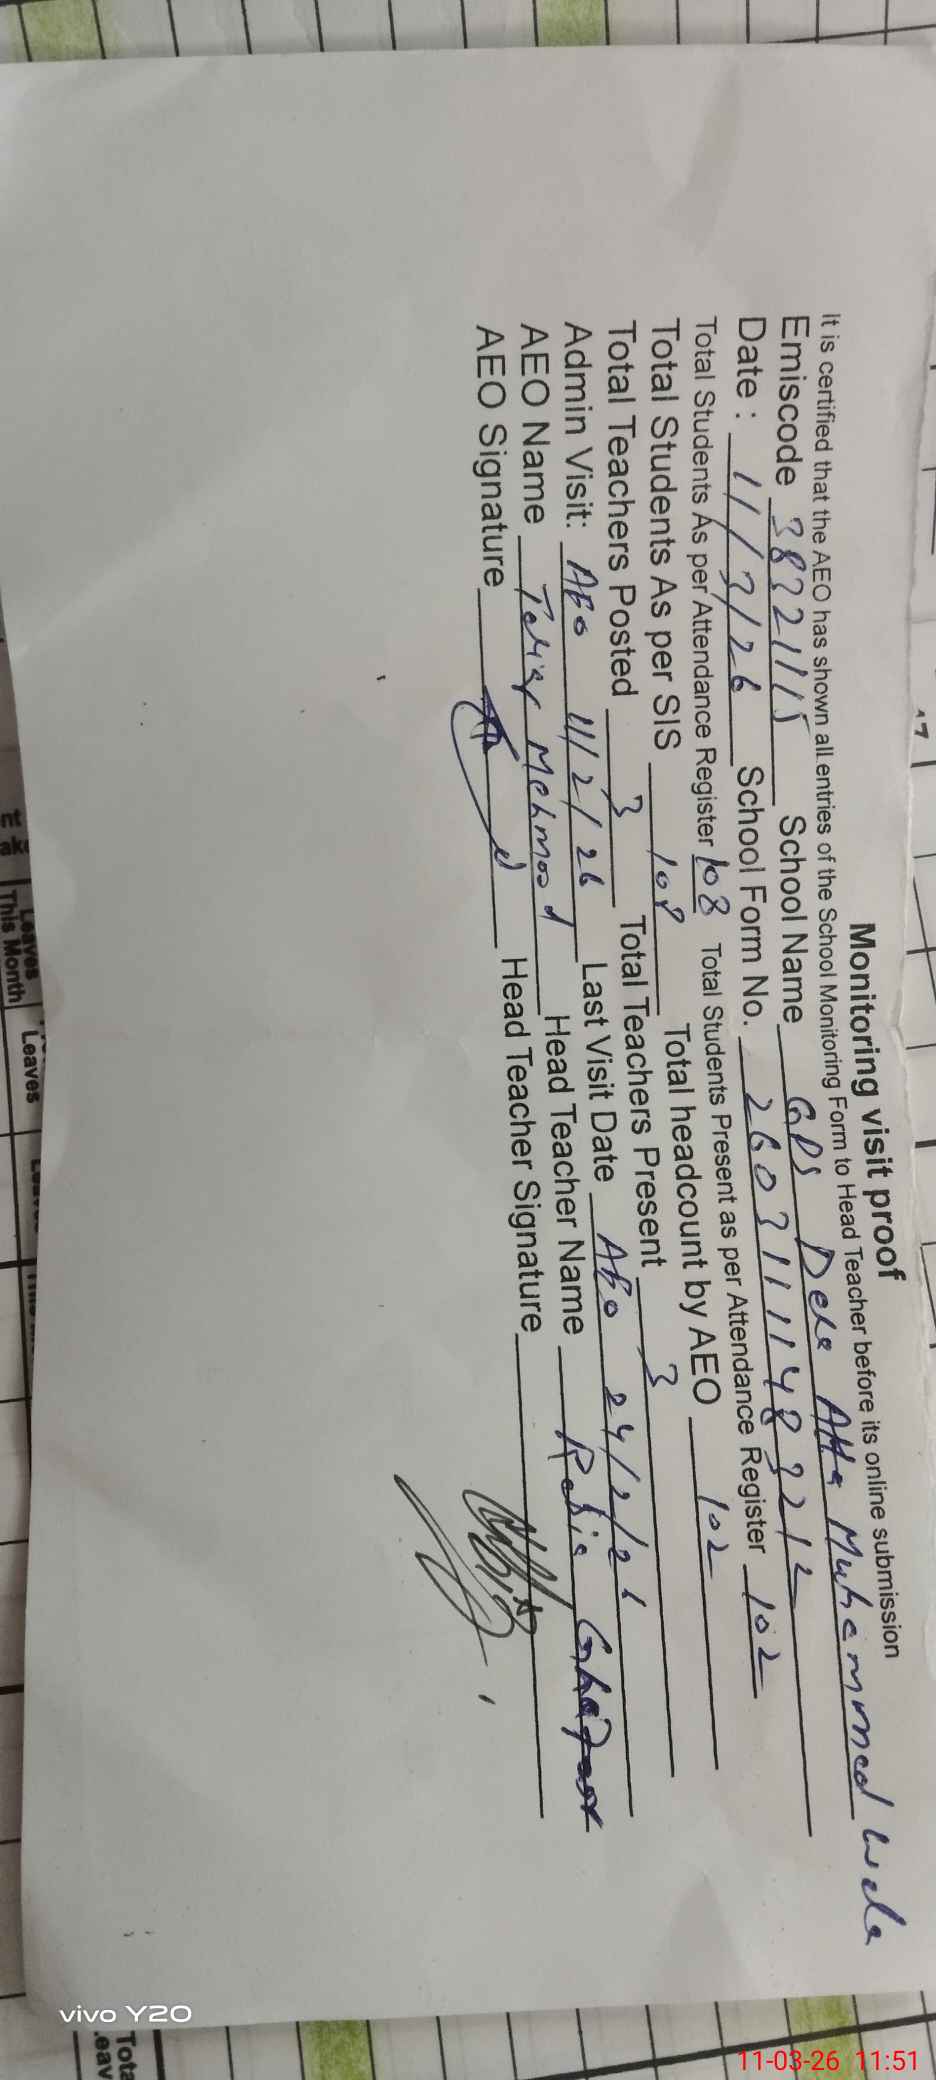 Monitoring visit proof
It is certified that the AEO has shown all entries of the School Monitoring Form to Head Teacher before its online submission
Emiscode 38321115 School Name GPS Dera Atta Muhammad wala
Date : 11/3/26 School Form No. 2603111483212
Total Students As per Attendance Register 108 Total Students Present as per Attendance Register 102
Total Students As per SIS 108 Total headcount by AEO 102
Total Teachers Posted 3 Total Teachers Present 3
Admin Visit: AEO 11/2/26 Last Visit Date AEO 24/2/26
AEO Name Tahir Mehmood Head Teacher Name Rabia Ghafoor
AEO Signature Head Teacher Signature
Leaves
This Month
Leaves
vivo Y20
11-03-26 11:51